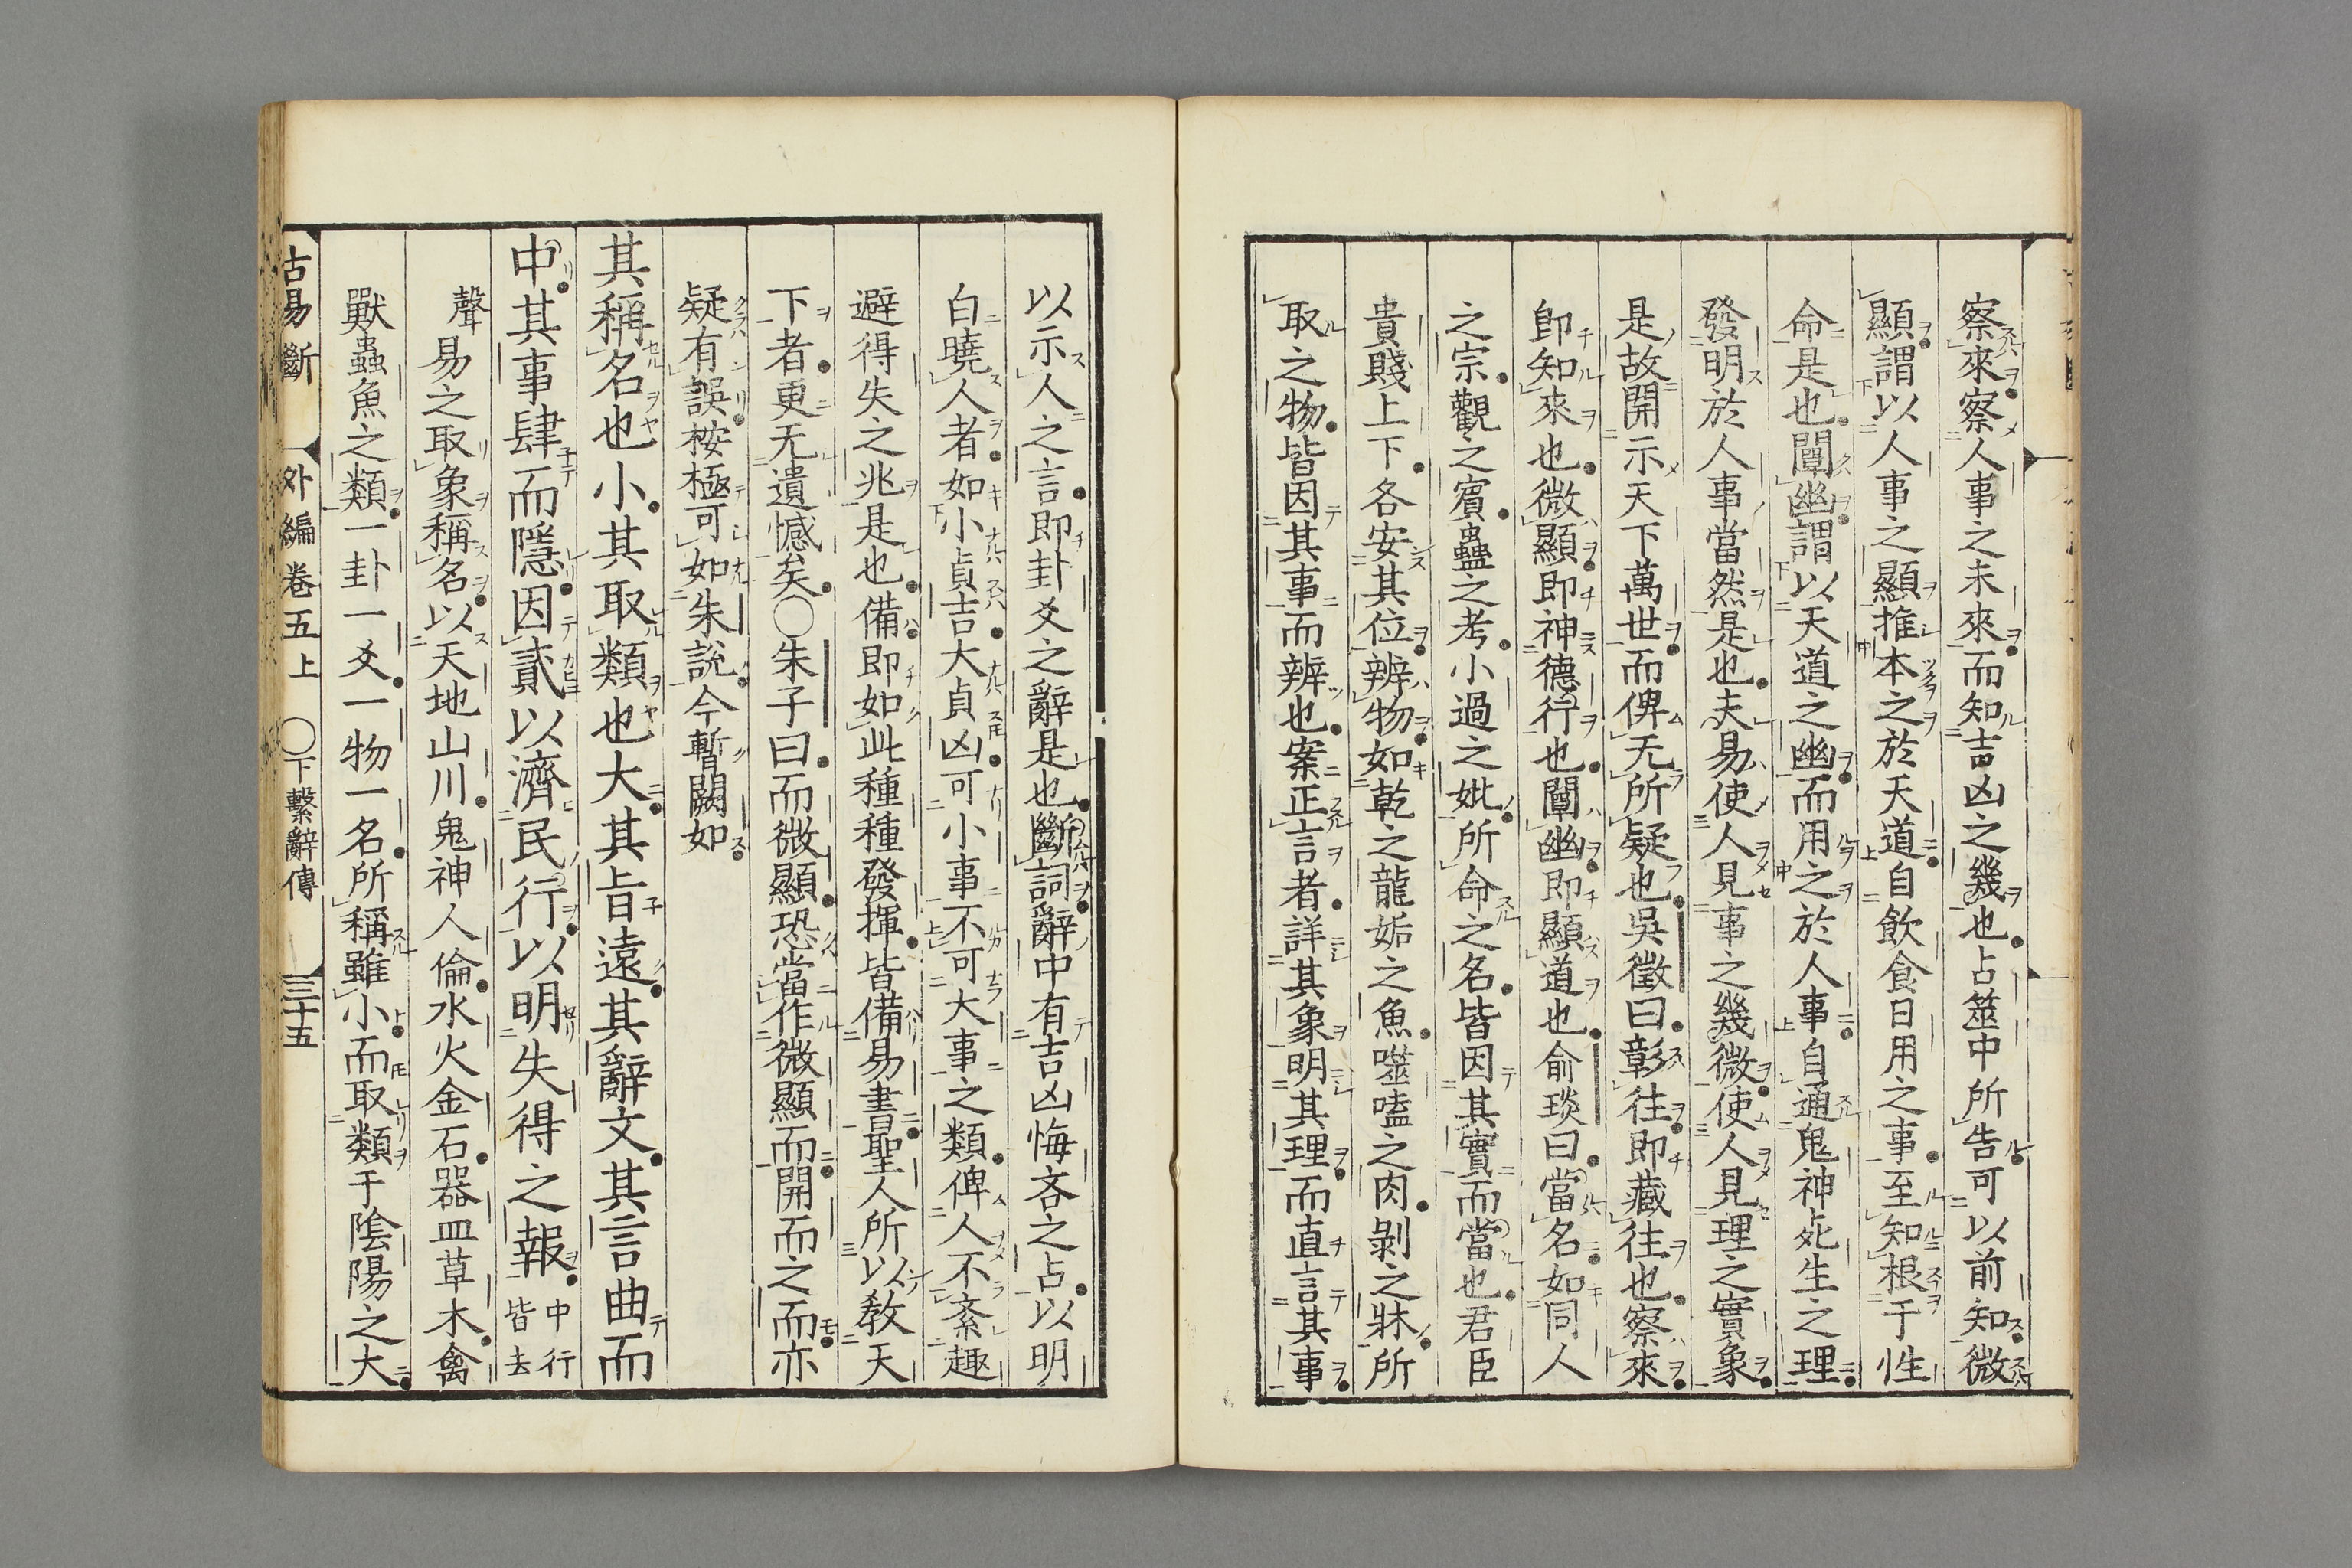 察來察人事之未來而知吉凶之幾也占筮中所告可以前知微
顯謂以人事之顯推本之於天道自飲食日用之事至知根于性
命是也闡幽謂以天道之幽而用之於人事自通鬼神死生之理
發明於人事當然是也夫易使人見事之幾微使人見理之實象
是故開示天下萬世而俾无所疑也吳徵曰彰往即藏往也察來
即知來也微顯即神德行也闡幽即顯道也俞琰曰當名如同人
之宗觀之賓蠱之考小過之妣所命之名皆因其實而當也君臣
貴賤上下各安其位辨物如乾之龍姤之魚噬嗑之肉剝之牀所
取之物皆因其事而辨也案正言者詳其象明其理而直言其事
以示人之言即卦爻之辭是也斷詞辭中有吉凶悔吝之占以明
白曉人者如小貞吉大貞凶可小事不可大事之類俾人不紊趣
避得失之兆是也備即如此種種發揮皆備易書聖人所以教天
下者更无遺憾矣〇朱子曰而微顯恐當作微顯而開而之而亦
疑有誤桉極可如朱說今暫闕如
其稱名也小其取類也大其旨遠其辭文其言曲而
中其事肆而隱因貳以濟民行以明失得之報 中行皆去
聲易之取象稱名以天地山川鬼神人倫水火金石器皿草木禽
獸蟲魚之類一卦一爻一物一名所稱雖小而取類于陰陽之大
古易斷 外編卷五上 〇下繫辭傳 三十五